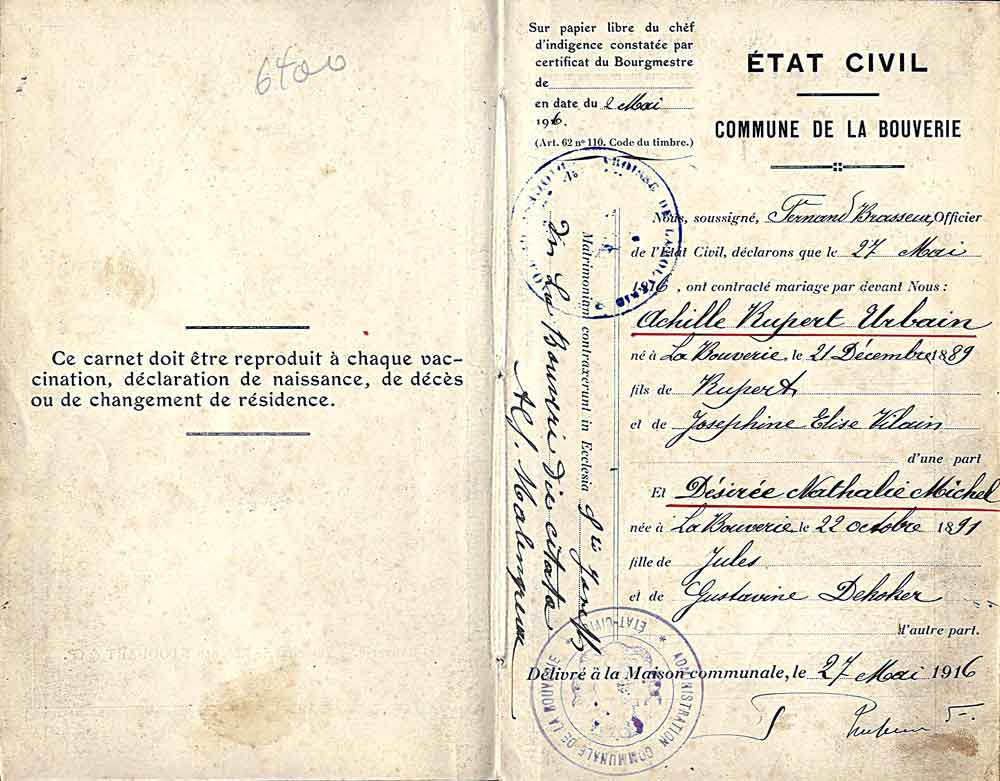 6400
Ce carnet doit être reproduit à chaque vac-
cination, déclaration de naissance, de décès
ou de changement de résidence.
Sur papier libre du chêf
d'indigence constatée par
certificat du Bourgmestre
de
en date du 2 Mai
1916.
(Art. 62 nº 110. Code du timbre.)
ÉTAT CIVIL
COMMUNE DE LA BOUVERIE
Nous, soussigné, Fernand Brasseur, Officier
de l'Etat Civil, déclarons que le 27 Mai
1916, ont contracté mariage par devant Nous :
Achille Rupert Urbain
né à La Bouverie, le 21 Décembre 1889
fils de Rupert
et de Josephine Elise Vilain
d'une part
Et Désirée Nathalie Michel
née à La Bouverie le 22 octobre 1891
fille de Jules
et de Gustavine Dehoker
d'autre part.
Délivré à la Maison communale, le 27 Mai 1916
Matrimonium contraxerunt in Ecclesia Sti Joseph
in La Bouverie die citata
ADMINISTRATION COMMUNALE DE LA BOUVERIE
* ÉTAT-CIVIL *